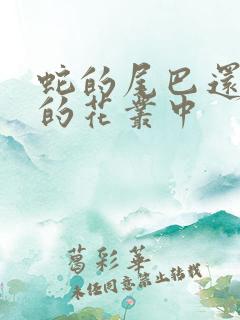 蛇的尾巴還
的花叢中
葛彩華
未經同意禁止轉載